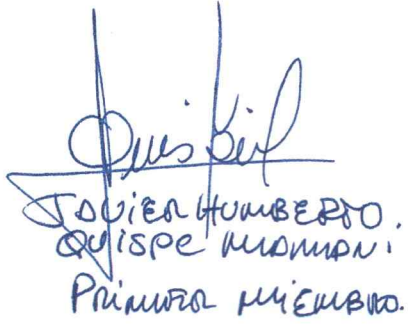 JAVIER HUMBERTO.
QUISPE MAMANI.
PRIMER MIEMBRO.